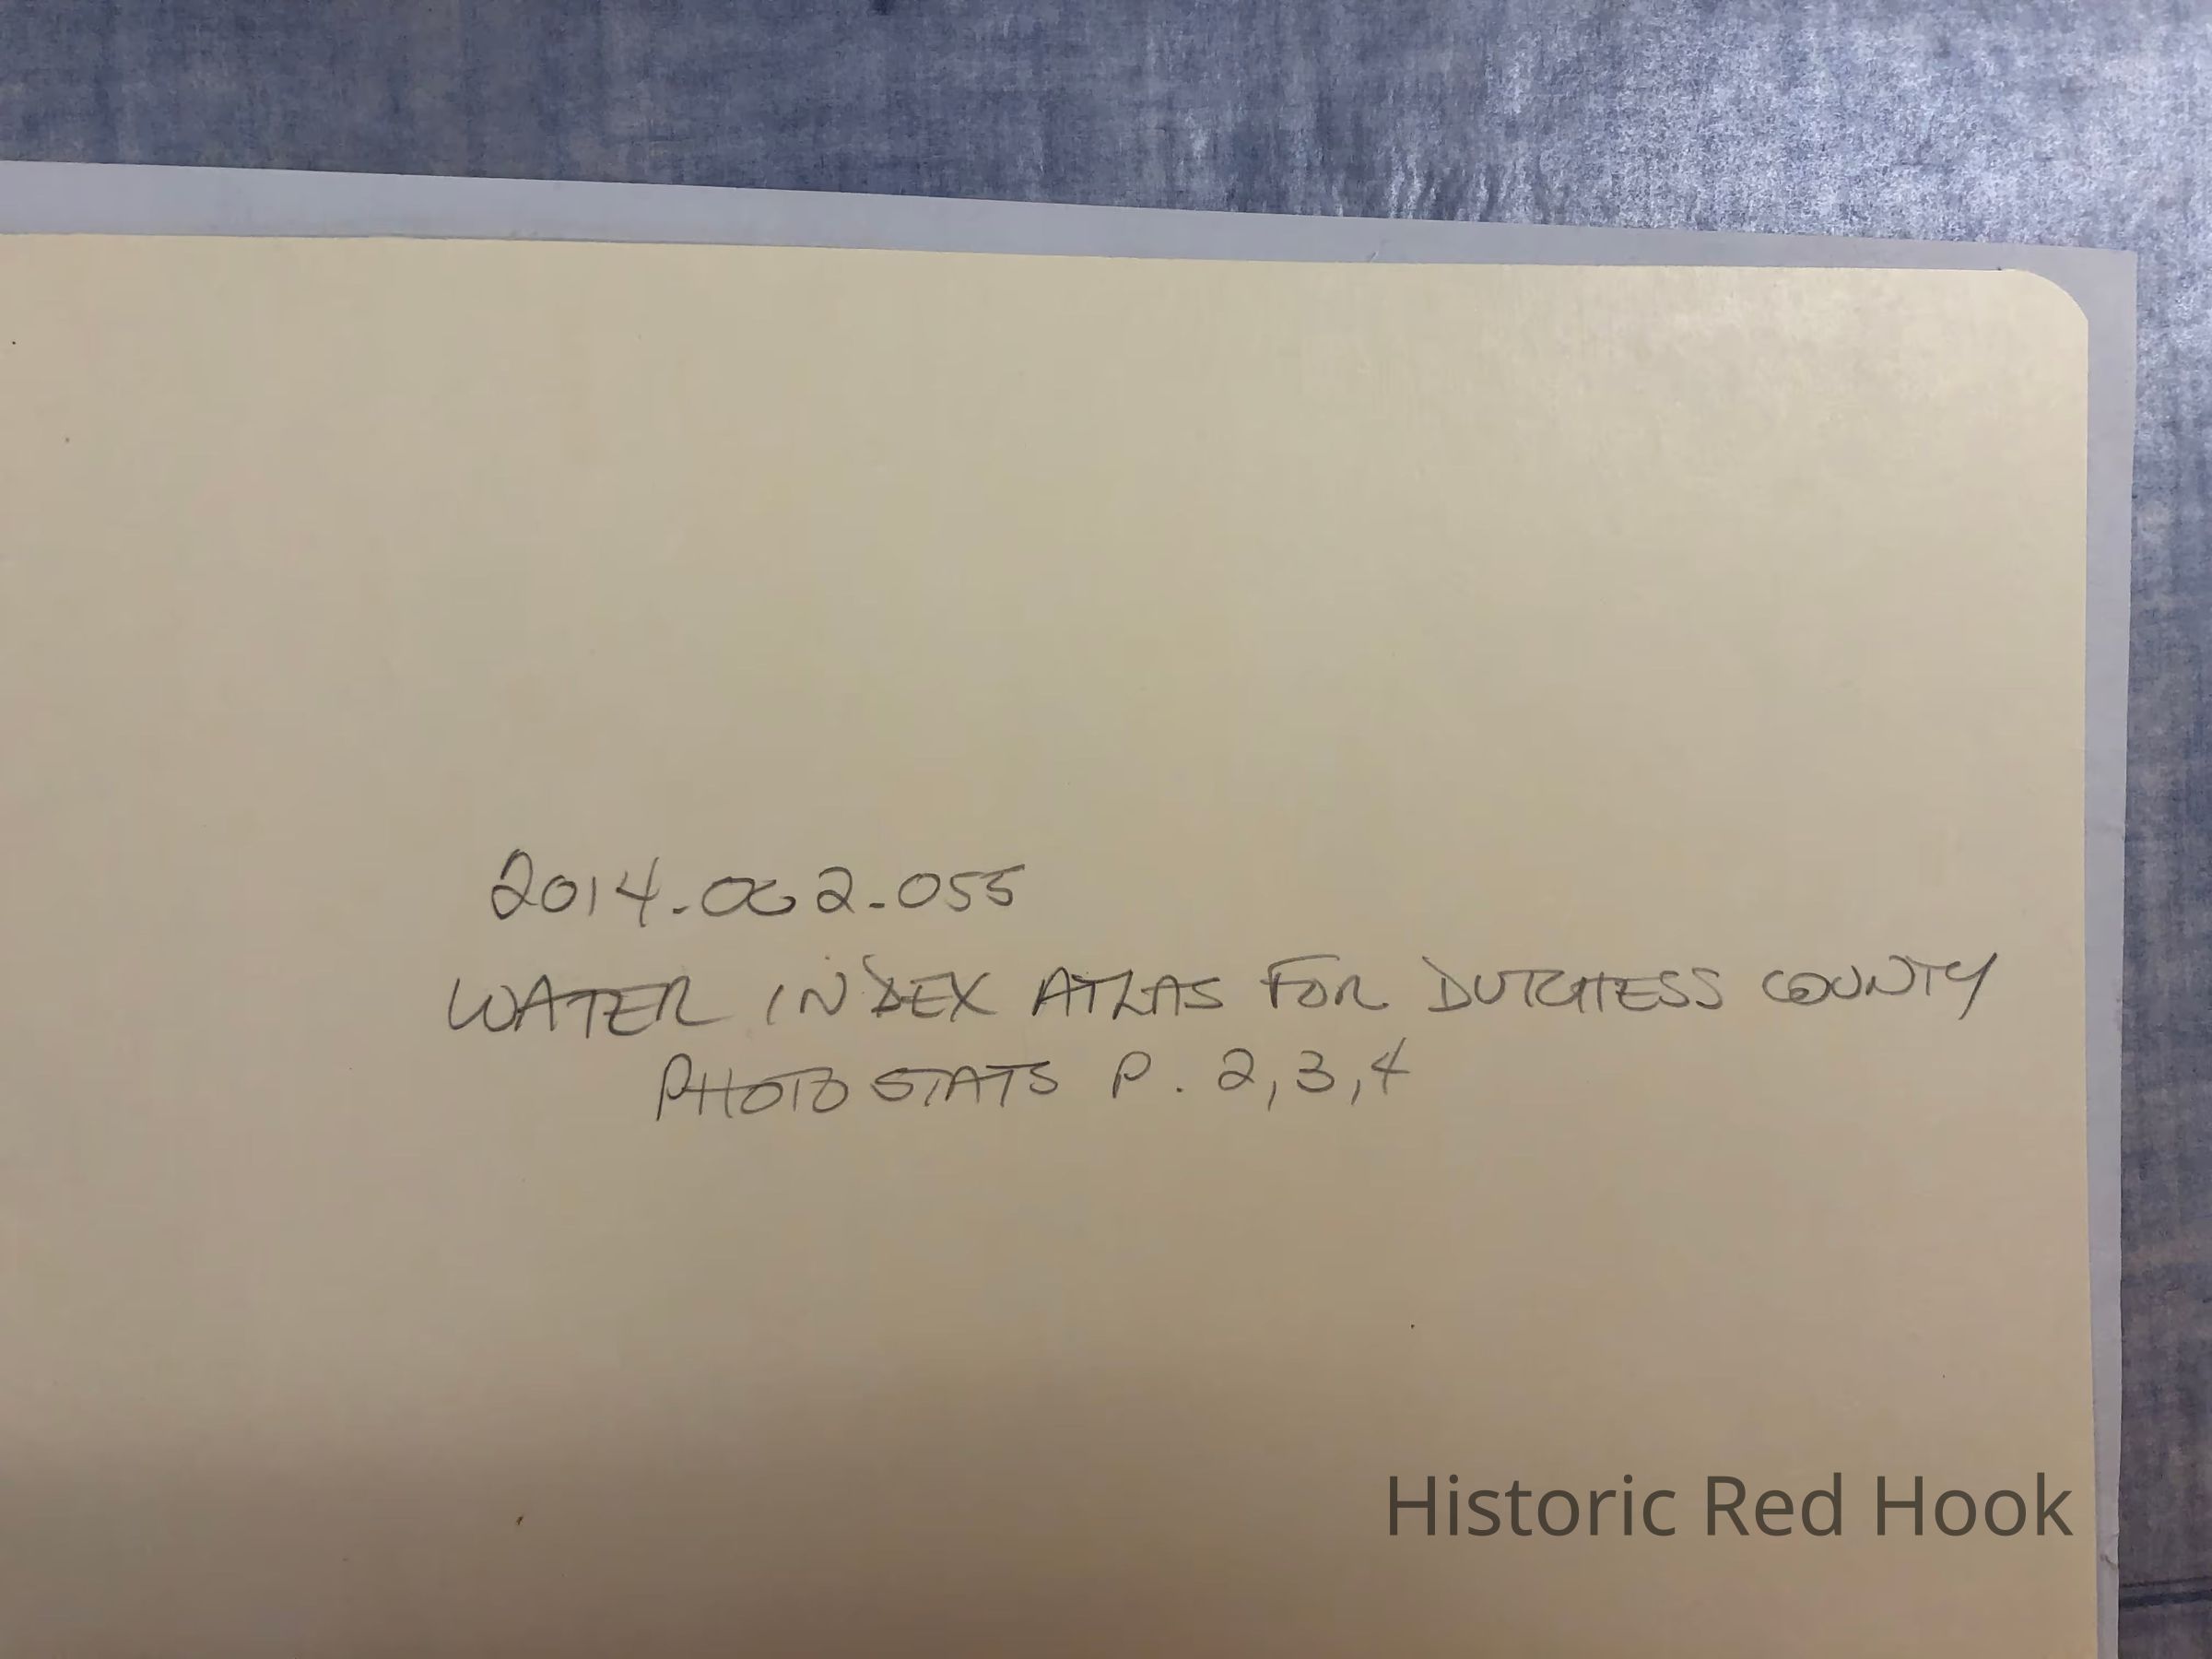 2014-002-055
WATER INDEX ATLAS FOR DUTCHESS COUNTY
PHOTOSTATS P. 2,3,4
Historic Red Hook